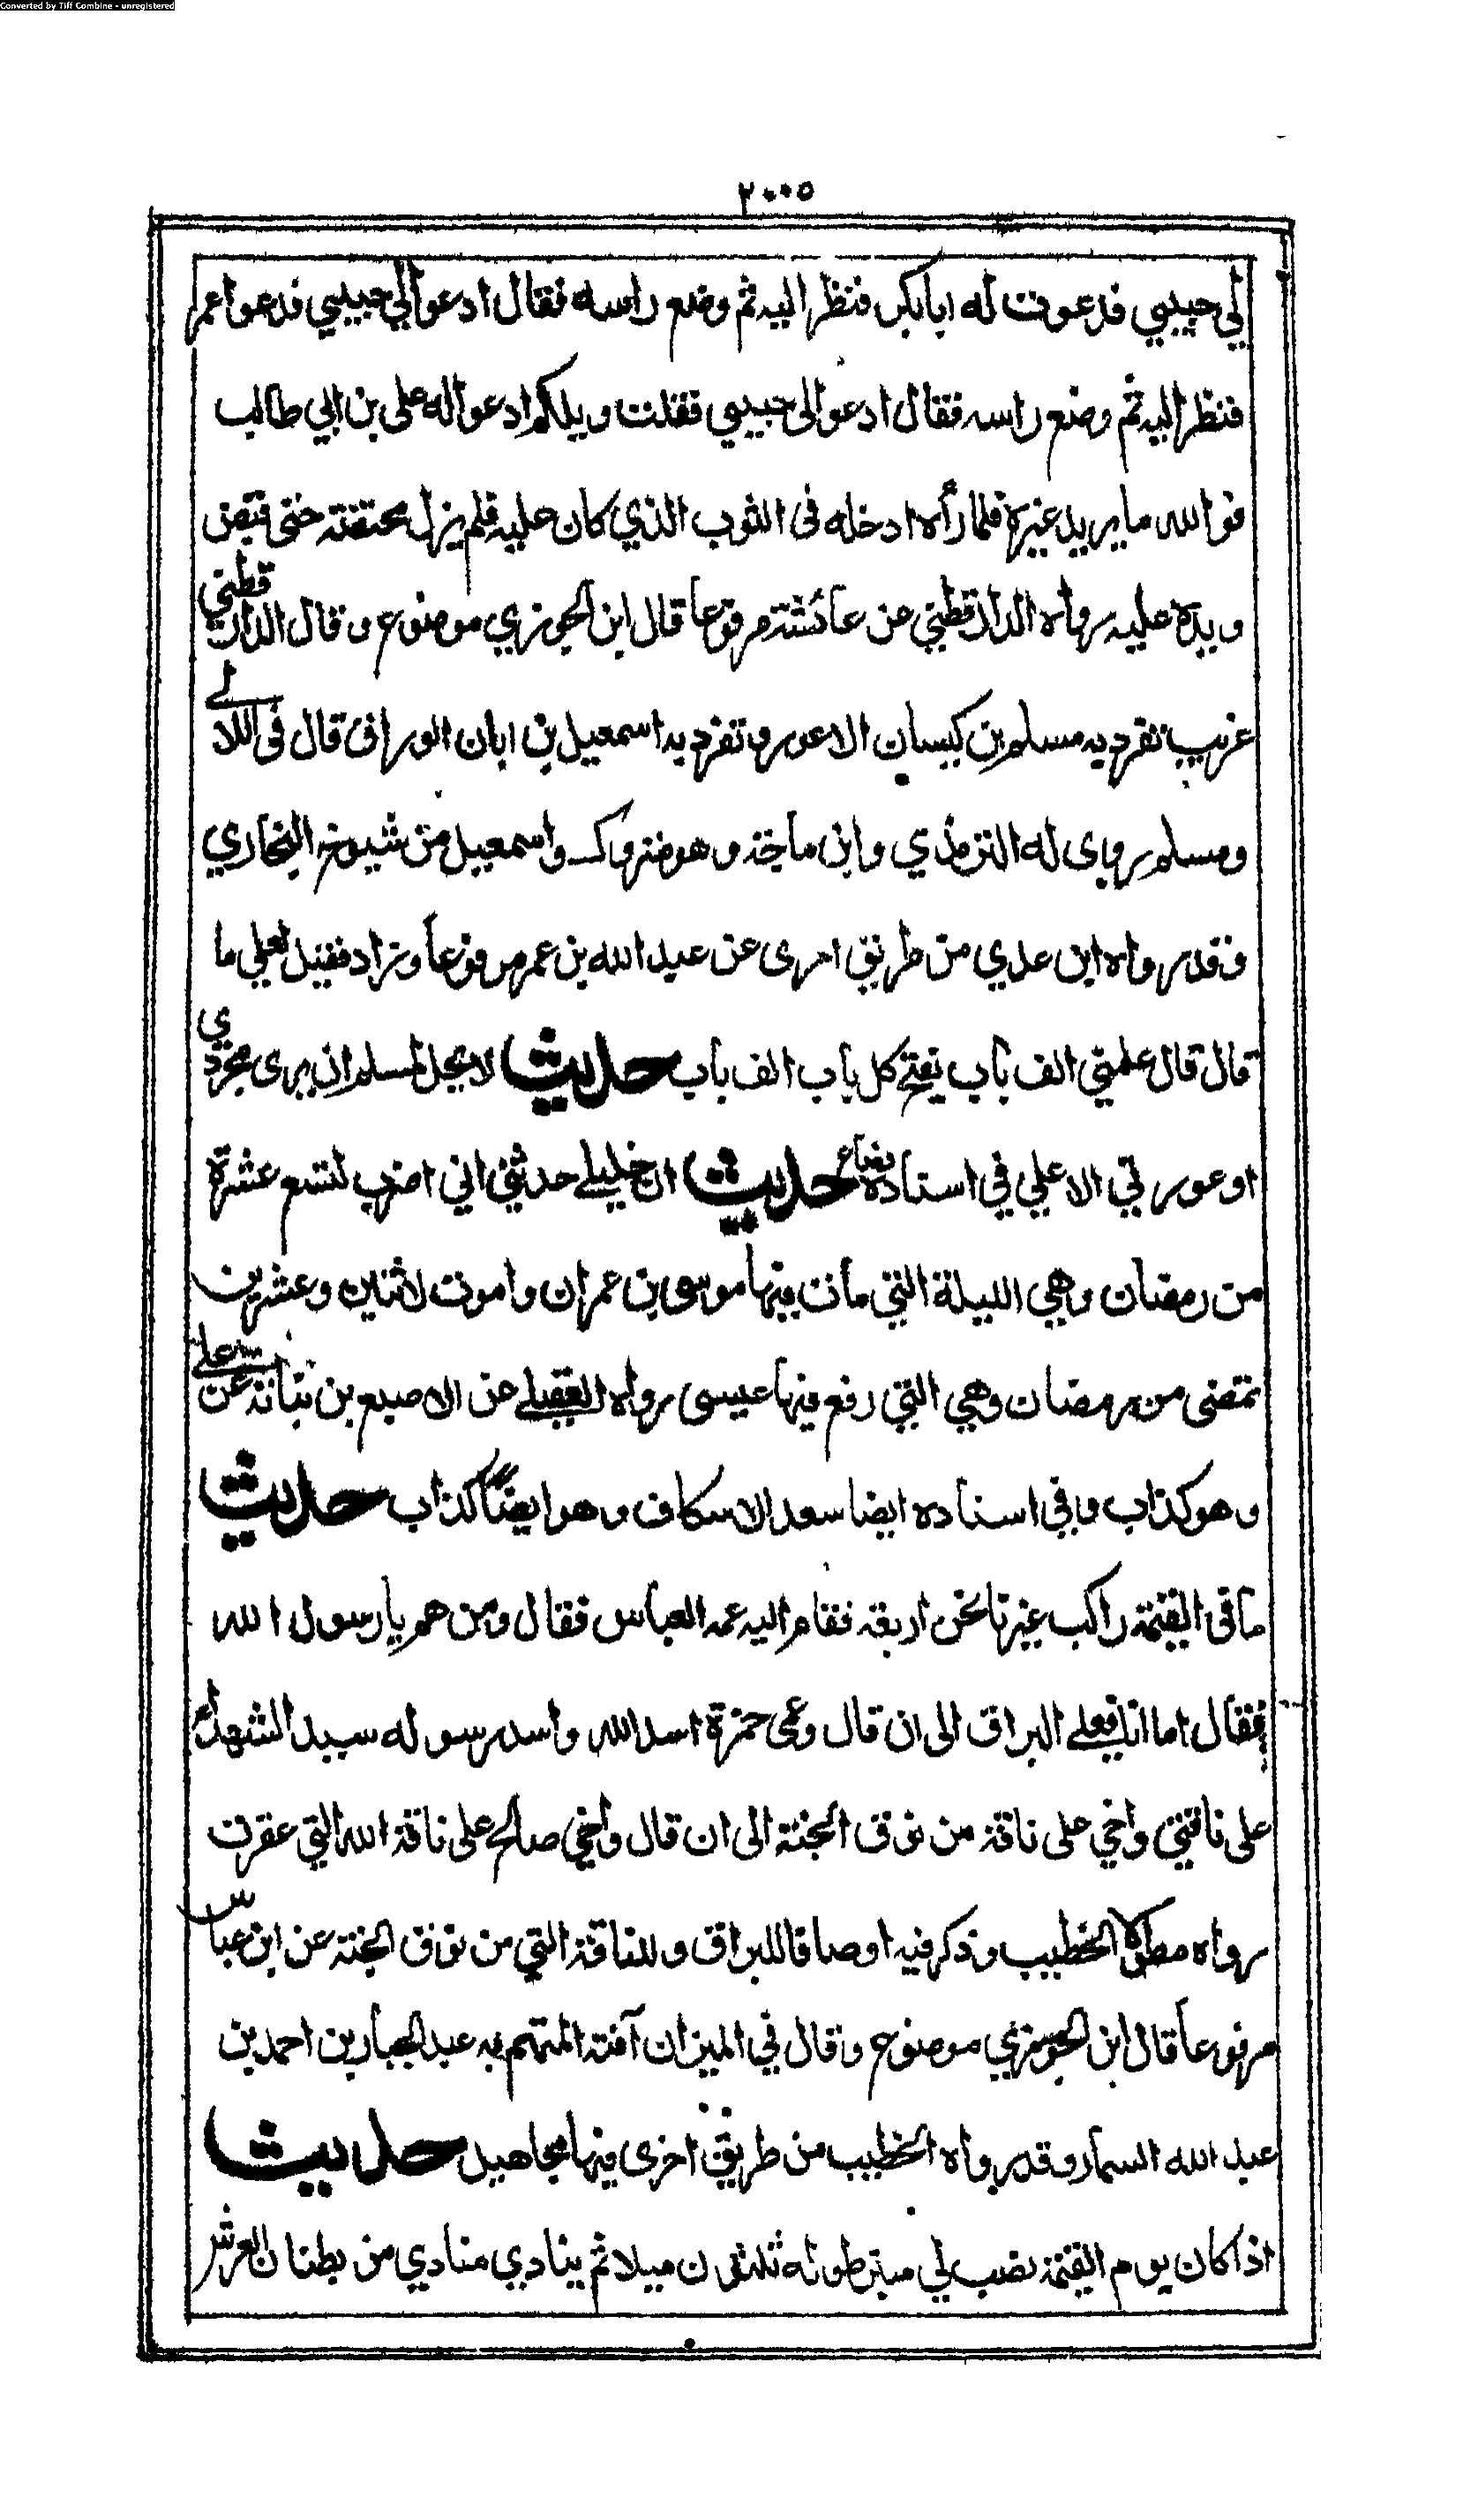 Converted by Tiff Combine - unregistered
٢٠٠٥
لي حبيبي فدعوت له ابا بكر فنظر اليه ثم وضع راسه فقال ادعوا لي حبيبي فدعوا عمر
فنظر اليه ثم وضع راسه فقال ادعوا الى حبيبي فقلت ويلكم ادعوا له على بن ابي طالب
فوالله ما يريد غيره فلما رأه ادخله فى الثوب الذي كان عليه فلم يزل محتضنه حتى قبض
ويده عليه رواه الدارقطني عن عائشة مرفوعا قال ابن الجوزي موضوع وقال الدارقطني
غريب تفرد به مسلم بن كيسان الاعور وتفرد به اسمعيل بن ابان الوراق قال فى اللالئ
ومسلم روى له الترمذي وابن ماجة وهو متروك واسمعيل من شيوخ البخاري
وقد رواه ابن عدي من طريق اخرى عن عبد الله بن عمر مرفوعا وزاد فقيل لعلي ما
قال قال علمني الف باب يفتح كل باب الف باب حديث لا يحل لمسلم ان يرى مجردي
او عورتي الا علي في اسناده وضاع حديث ان خليلي حدثني اني اضرب لتسع عشرة
من رمضان وهي الليلة التي مات فيها موسى بن عمران واموت لاثنين وعشرين
تمضى من رمضان وهي التي رفع فيها عيسى رواه العقيلي عن الاصبع بن نباتة عن علي
وهو كذاب وفي اسناده ايضا سعد الاسكاف وهو ايضا كذاب حديث
ما فى القيمة راكب غيرنا نحن اربعة فقام اليه عمه العباس فقال ومن هم يا رسول الله
فقال اما انا فعلى البراق الى ان قال وعمى حمزة اسد الله واسد رسوله سيد الشهداء
على ناقتي واخي على ناقة من نوق الجنة الى ان قال واخي صالح على ناقة الله التي عقرت
رواه الخطيب وذكر فيه اوصافا للبراق وللناقة التي من نوق الجنة عن ابن عباس
مرفوعا قال ابن الجوزي موضوع وقال في الميزان آفته المتهم به عبد الجبار بن احمد بن
عبد الله السمار وقد رواه الخطيب من طريق اخرى فيها مجاهيل حديث
اذا كان يوم القيمة نصب لي منبر طوله ثلثون ميلا ثم ينادي منادي من بطنان العرش